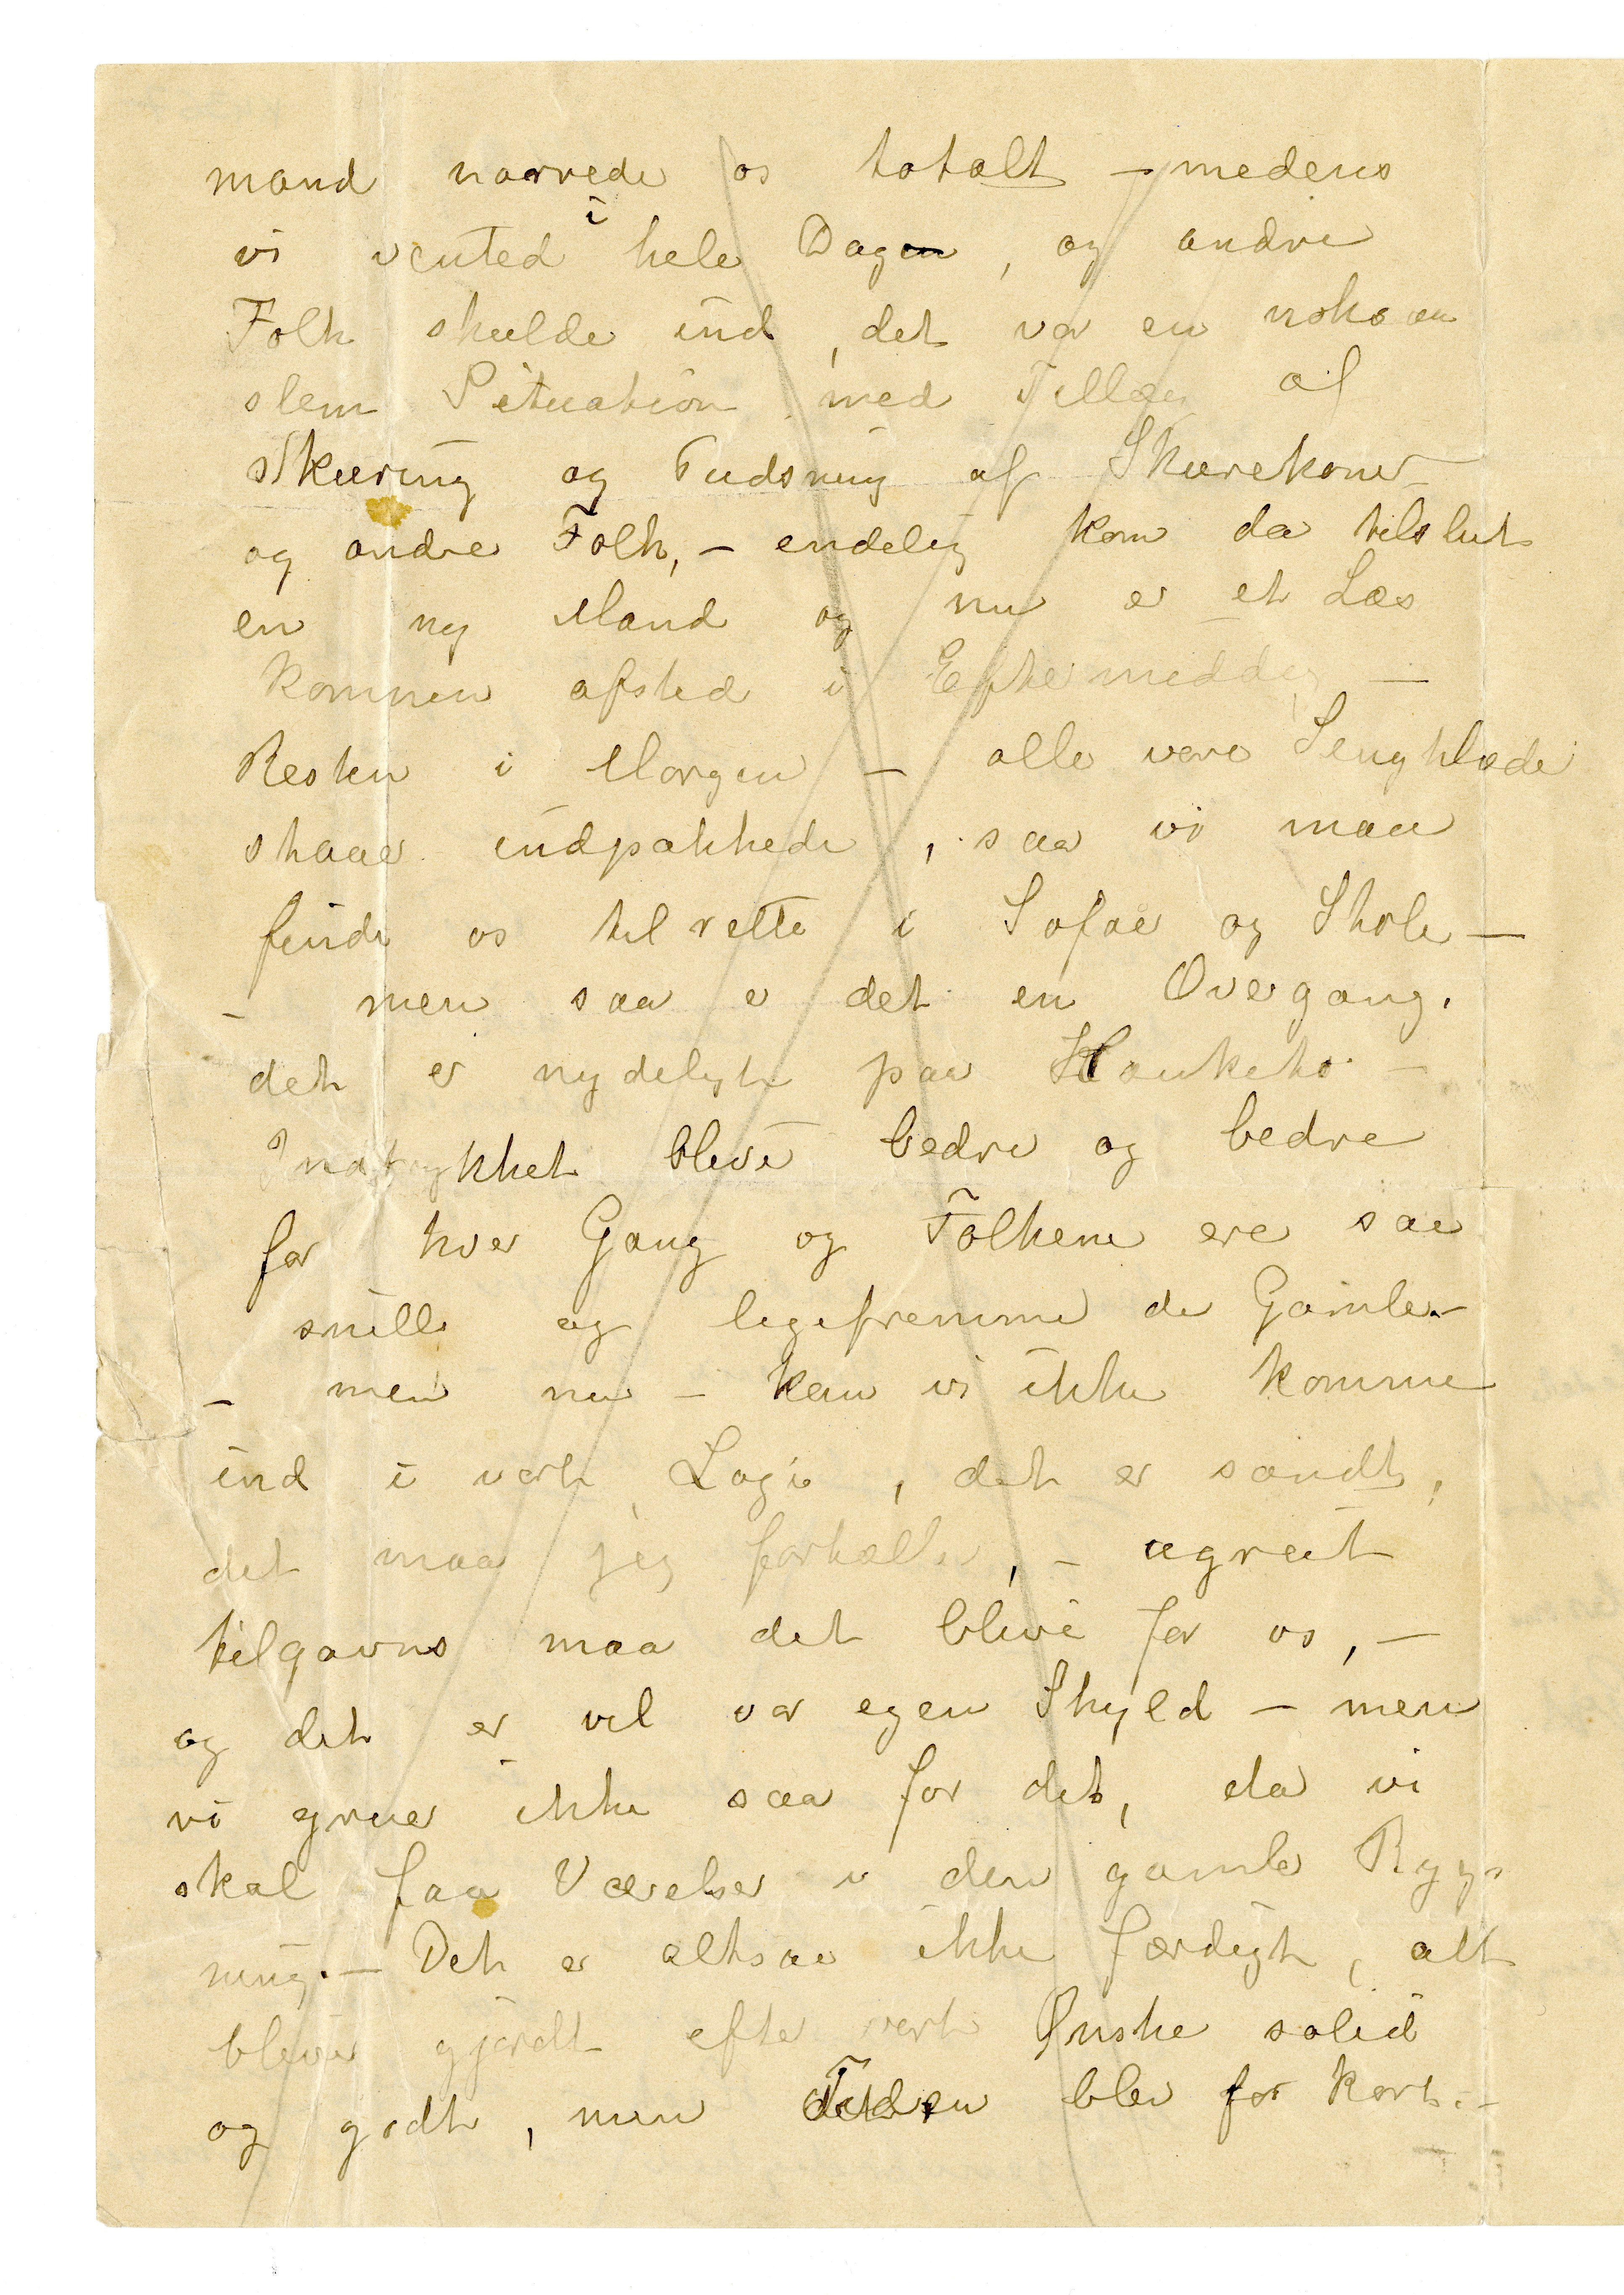 mand narrede os totalt – medens
vi vented i hele Dag, og andre
Folk skulde ind, det var en noksaa
slem Situation med Tillæg af
Skuring og Pudsning af Skurekoner
og andre Folk, – endelig kom da tilslut
en ny Mand og nu er et Læs
kommen afsted i Eftermiddag –
Resten i Morgen – alle vore Sengklæde
staaer indpakkede, saa vi maa
finde os tilrette i Sofaer og Stole –
– men saa er det en Overgang.
det er nydeligt paa Hauketo –
Indtrykket bliver bedre og bedre
for hver Gang og Folkene ere saa
snille og ligefremme de Gamle –
– men nu – kan vi ikke komme
ind i vort Logi, det er sandt,
det maa jeg fortælle, – ugreit
tilgavns maa det blive for os, –
og det er vel vor egen Skyld – men
vi gruer ikke saa for det, da vi
skal faa Værelser i den gamle Byg-
ning. – Det er altsaa ikke færdigt, alt
bliver gjordt efter vort Ønske solid
og godt, men Tiden blev for kort. –